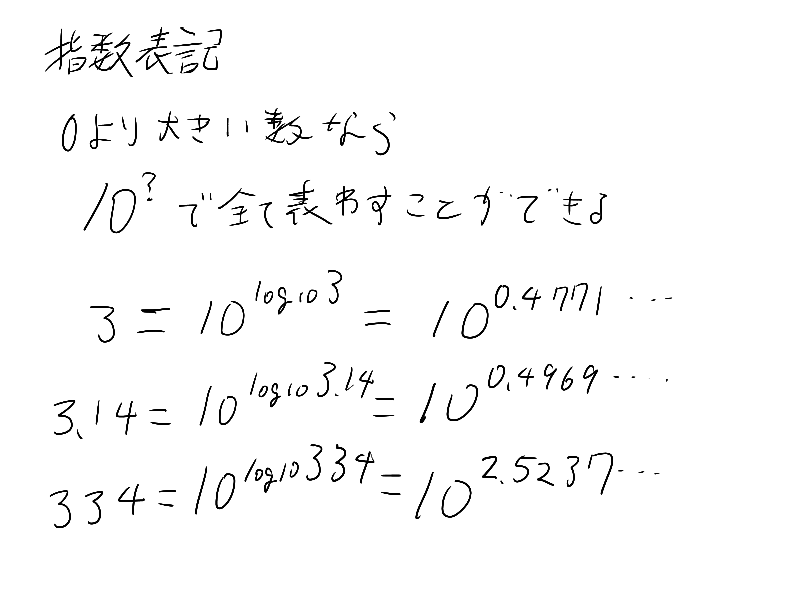 指数表記
0より大きい数なら
10^? で全て表わすことができる
3 = 10^{log₁₀3} = 10^{0.4771...}
3.14 = 10^{log₁₀3.14} = 10^{0.4969....}
334 = 10^{log₁₀334} = 10^{2.5237...}